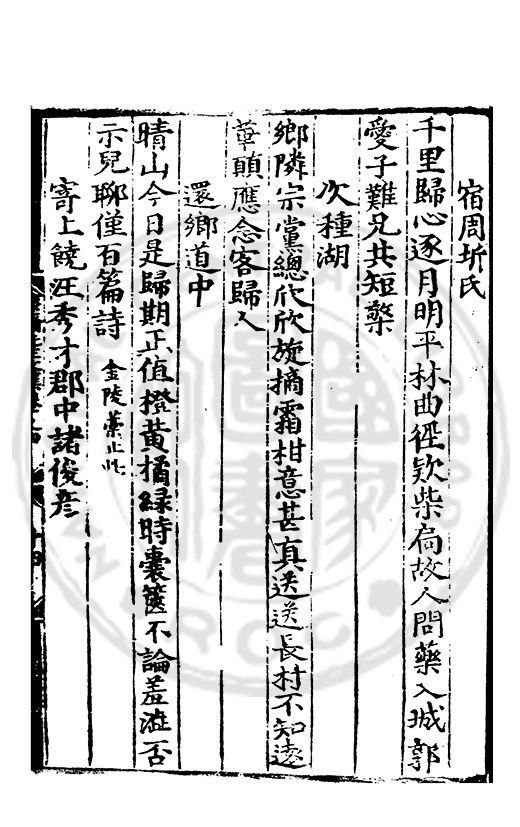 宿周圻氏
千里歸心逐月明平林曲徑欵柴扃故人問藥入城郭
愛子難兄共短檠
次種湖
鄉隣宗黨總欣欣旋摘霜柑意甚真送送長村不知遠
華顛應念客歸人
還鄉道中
晴山今日是歸期正值橙黃橘緑時囊篋不論羞澁否
示兒聊僅百篇詩 金陵藁止此
寄上饒汪秀才郡中諸俊彥